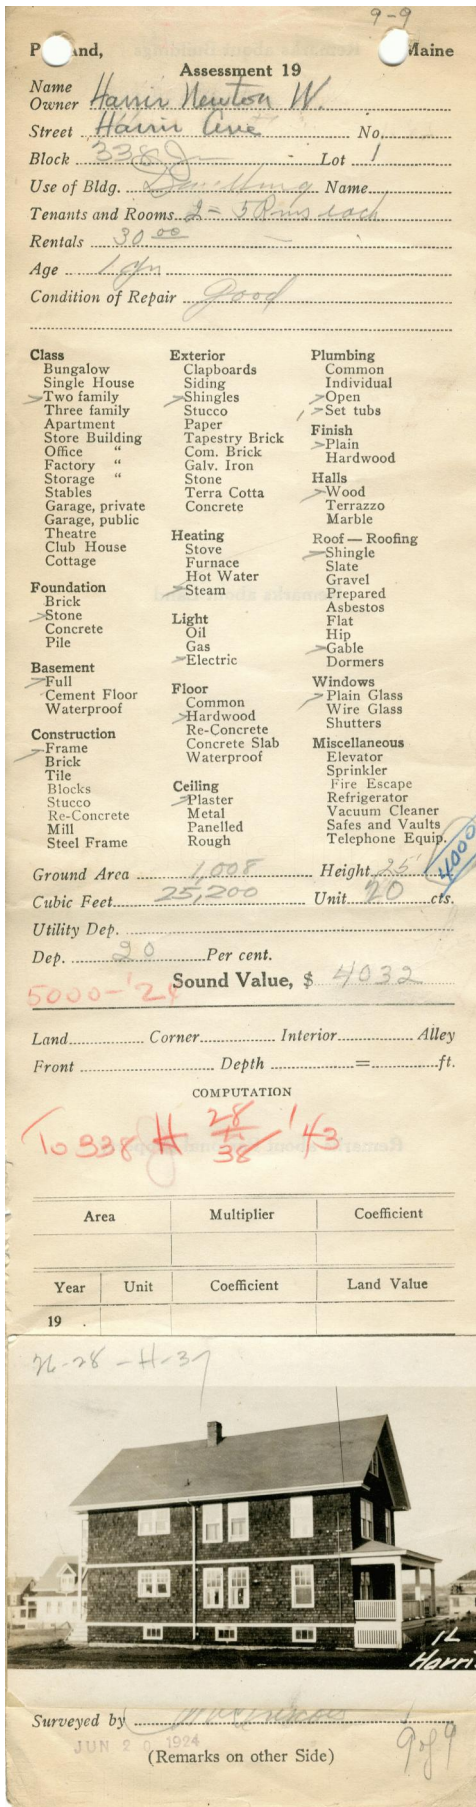 9-9
P and, Maine
Assessment 19
Name
Owner Harris Newton W.
Street Harris Ave No.
Block 338 J Lot 1
Use of Bldg. Dwelling Name
Tenants and Rooms 2 = 5 Rms each
Rentals 30 00
Age 1 yr
Condition of Repair good
Class
Bungalow
Single House
Two family
Three family
Apartment
Store Building
Office "
Factory "
Storage "
Stables
Garage, private
Garage, public
Theatre
Club House
Cottage
Foundation
Brick
Stone
Concrete
Pile
Basement
Full
Cement Floor
Waterproof
Construction
Frame
Brick
Tile
Blocks
Stucco
Re-Concrete
Mill
Steel Frame
Exterior
Clapboards
Siding
Shingles
Stucco
Paper
Tapestry Brick
Com. Brick
Galv. Iron
Stone
Terra Cotta
Concrete
Heating
Stove
Furnace
Hot Water
Steam
Light
Oil
Gas
Electric
Floor
Common
Hardwood
Re-Concrete
Concrete Slab
Waterproof
Ceiling
Plaster
Metal
Panelled
Rough
Plumbing
Common
Individual
Open
1 Set tubs
Finish
Plain
Hardwood
Halls
Wood
Terrazzo
Marble
Roof — Roofing
Shingle
Slate
Gravel
Prepared
Asbestos
Flat
Hip
Gable
Dormers
Windows
Plain Glass
Wire Glass
Shutters
Miscellaneous
Elevator
Sprinkler
Fire Escape
Refrigerator
Vacuum Cleaner
Safes and Vaults
Telephone Equip.
4000
Ground Area 1,008 Height 25'
Cubic Feet 25,200 Unit 20 cts.
Utility Dep.
Dep. 20 Per cent.
Sound Value, $ 4032
5000-'24
Land Corner Interior Alley
Front Depth = ft.
COMPUTATION
To 338 H 28/38 '43
Area Multiplier Coefficient
Year Unit Coefficient Land Value
19 .
26-28-H-37
Harri
Surveyed by
JUN 20 1924
(Remarks on other Side)
9 of 9